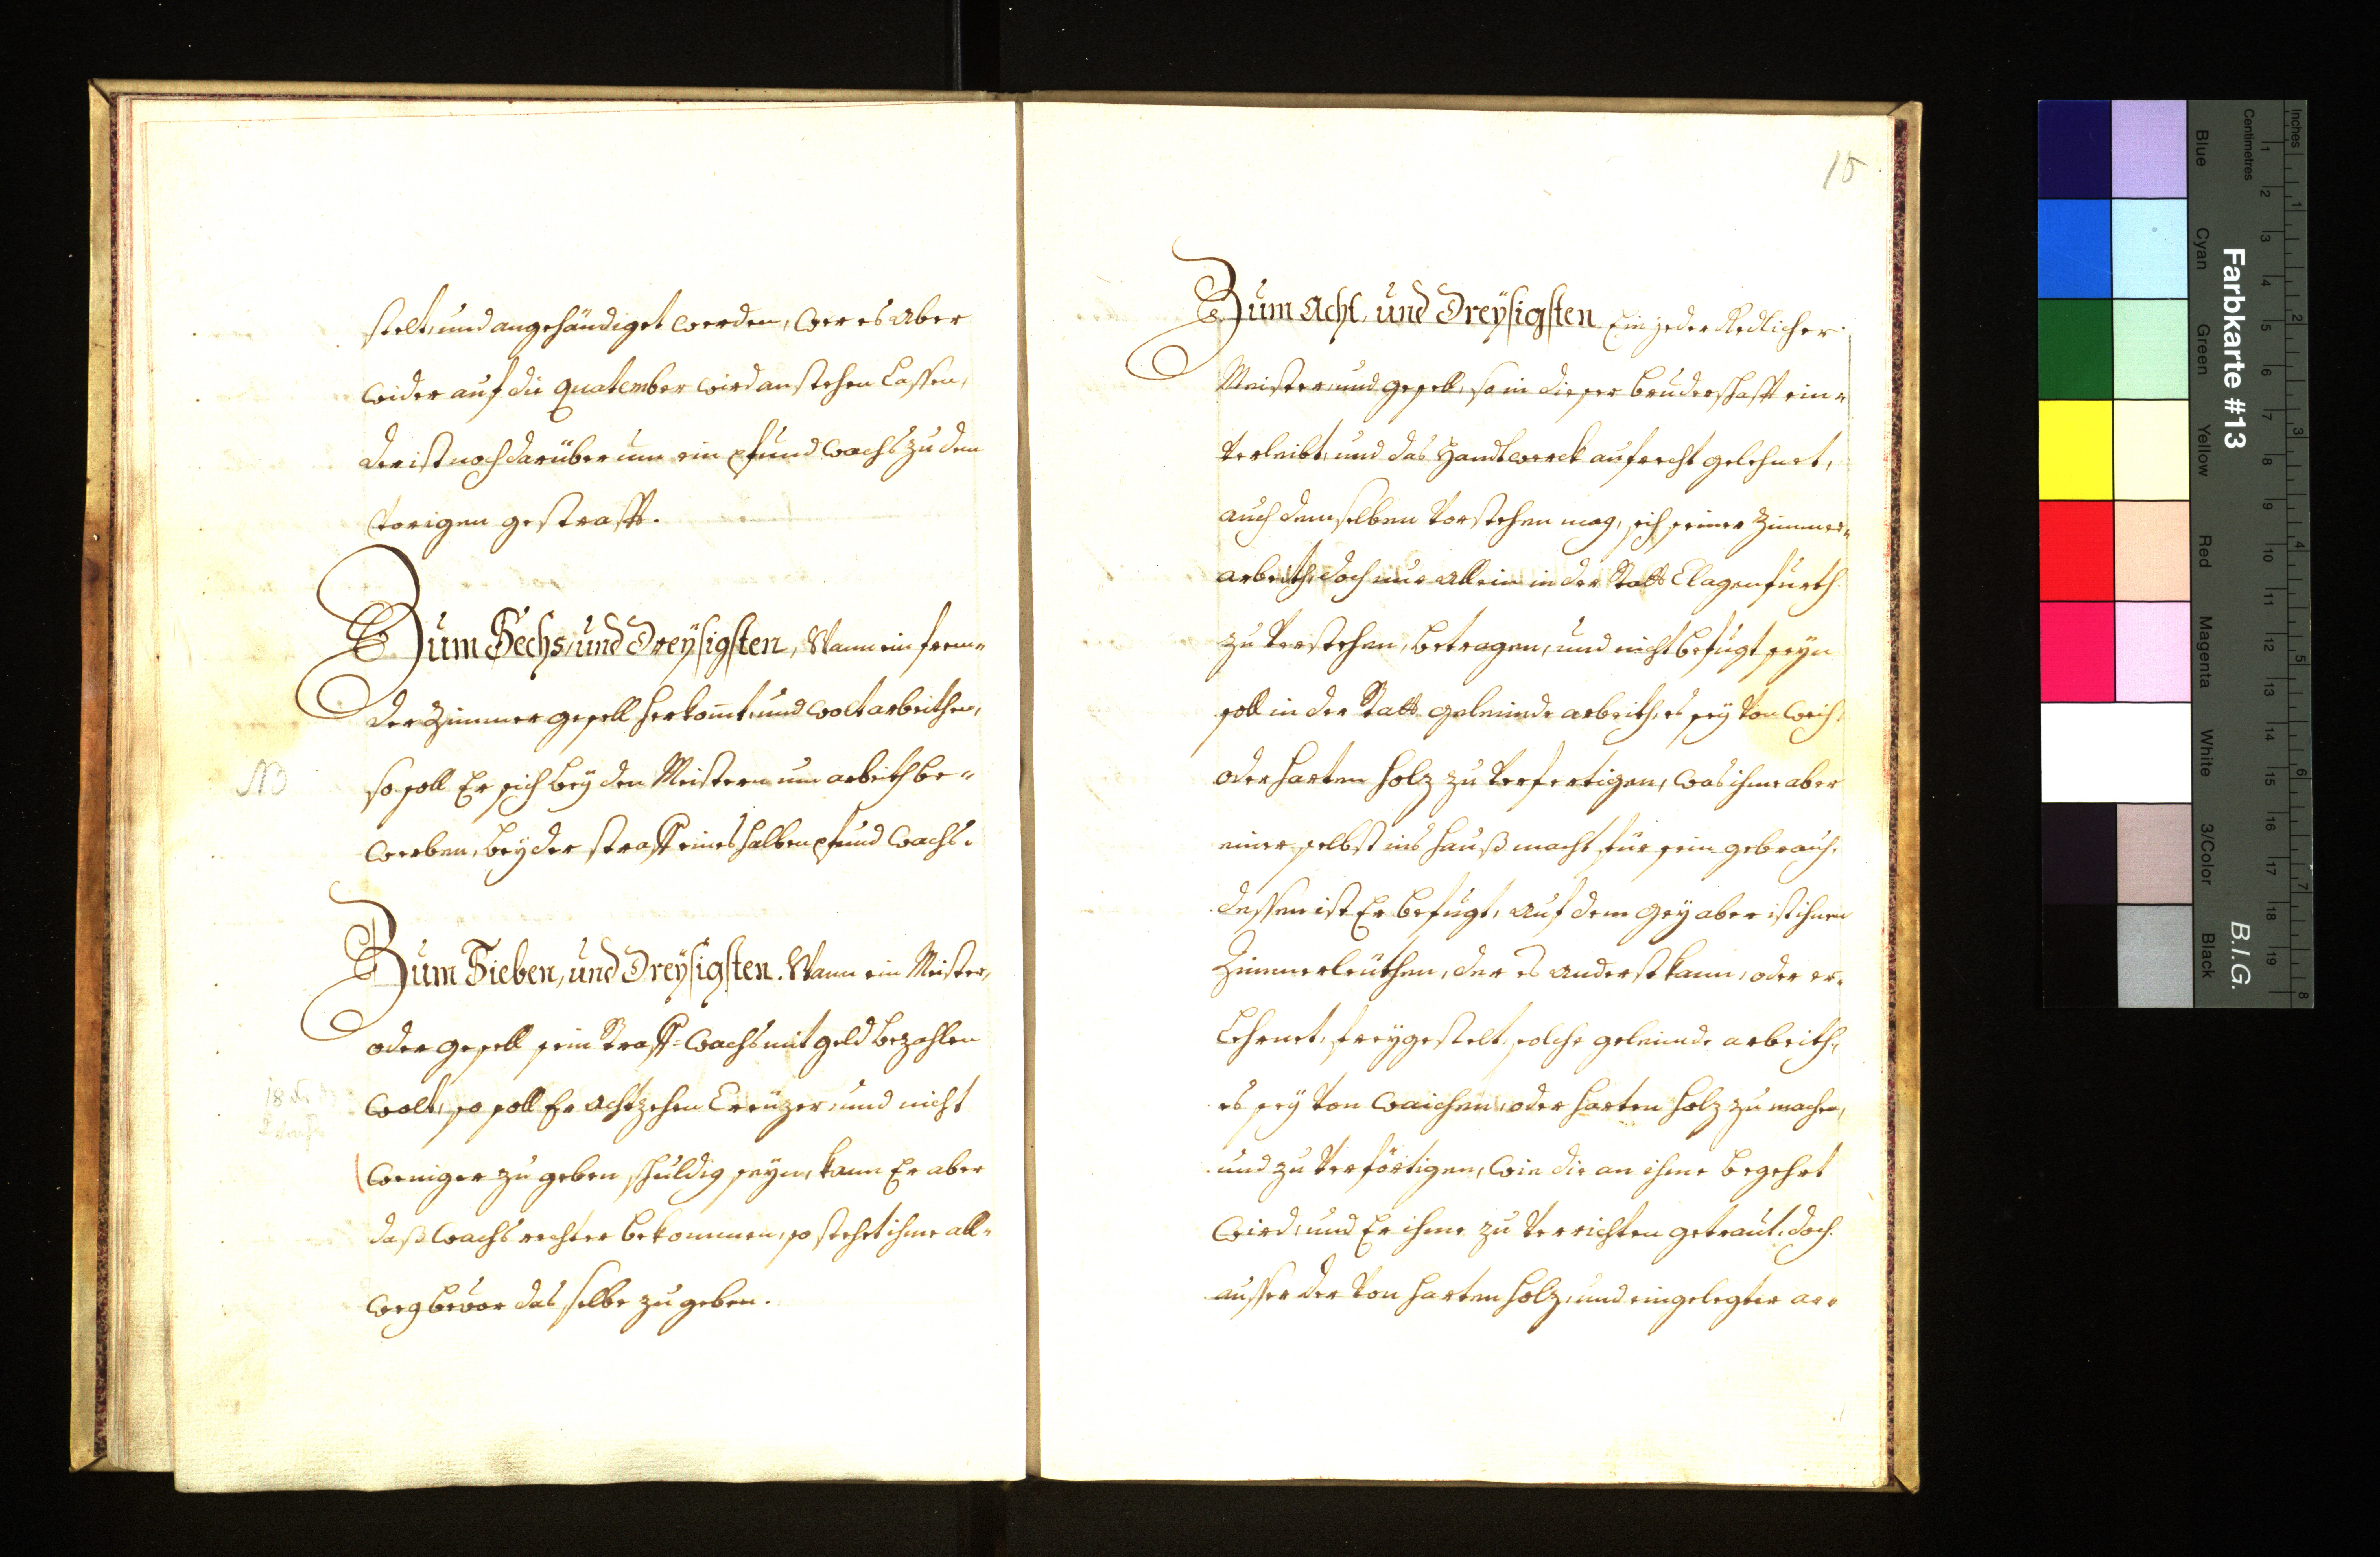 stelt, und angehändiget werden, wer es aber
wider auf die quatember wird anstehen lassen,
der ist noch darüber um ein pfund wachs zu dem
vorigen gestrafft.
Zum Sechs, und Dreÿsigsten, Wann ein frem=
der Zimmer gesell herkom̅t, und wolt arbeithen,
so soll Er sich beÿ den Meistern um arbeith be=
werben, beÿ der straff eines halben pfund wachs.
NB
Zum Sieben, und Dreÿsigsten. Wann ein Meister,
oder gesell sein Straff=wachs mit geld bezahlen
wolt, so soll Er achtzehen Creüzer, und nicht
weniger zu geben schuldig seyn, kann Er aber
daß wachs rechter bekommen, so stehet ihme all=
weg bevor das selbe zu geben.
18
15
Zum Acht, und Dreÿsigsten Ein jeder Redlicher
Meister, und gesell, so in dieser bruderschafft ein=
verleibt, und das Handtwerck aufrecht gelehrnet,
auch demselben vorstehen mag, sich seiner Zimmer=
arbeith, doch nur allein in der Statt Clagenfurth
zu verstehen, betragen, und nicht befugt seyn
soll in der Statt geleimde arbeith, es seÿ von weich,
oder harten holz zu verfertigen, was ihme aber
einer selbst ins hauß macht für sein gebrauch,
dessen ist Er befugt, auf dem geÿ aber ist ihnen
Zimmerleüthen, der es anderst kann, oder er=
lehrnet, freÿgestelt, solche geleimde arbeith,
es seÿ von waichen, oder harten holz zu machen,
und zu verförtigen, wie die an ihme begehrt
wird, und Er ihme zu verrichten getraut, doch
ausser der von harten holz, und eingelegter ar=
Farbkarte #13
B.I.G.
Inches
Centimetres
1 2 3 4 5 6 7 8
1 2 3 4 5 6 7 8 9 10 11 12 13 14 15 16 17 18 19
Blue
Cyan
Green
Yellow
Red
Magenta
White
3/Color
Black